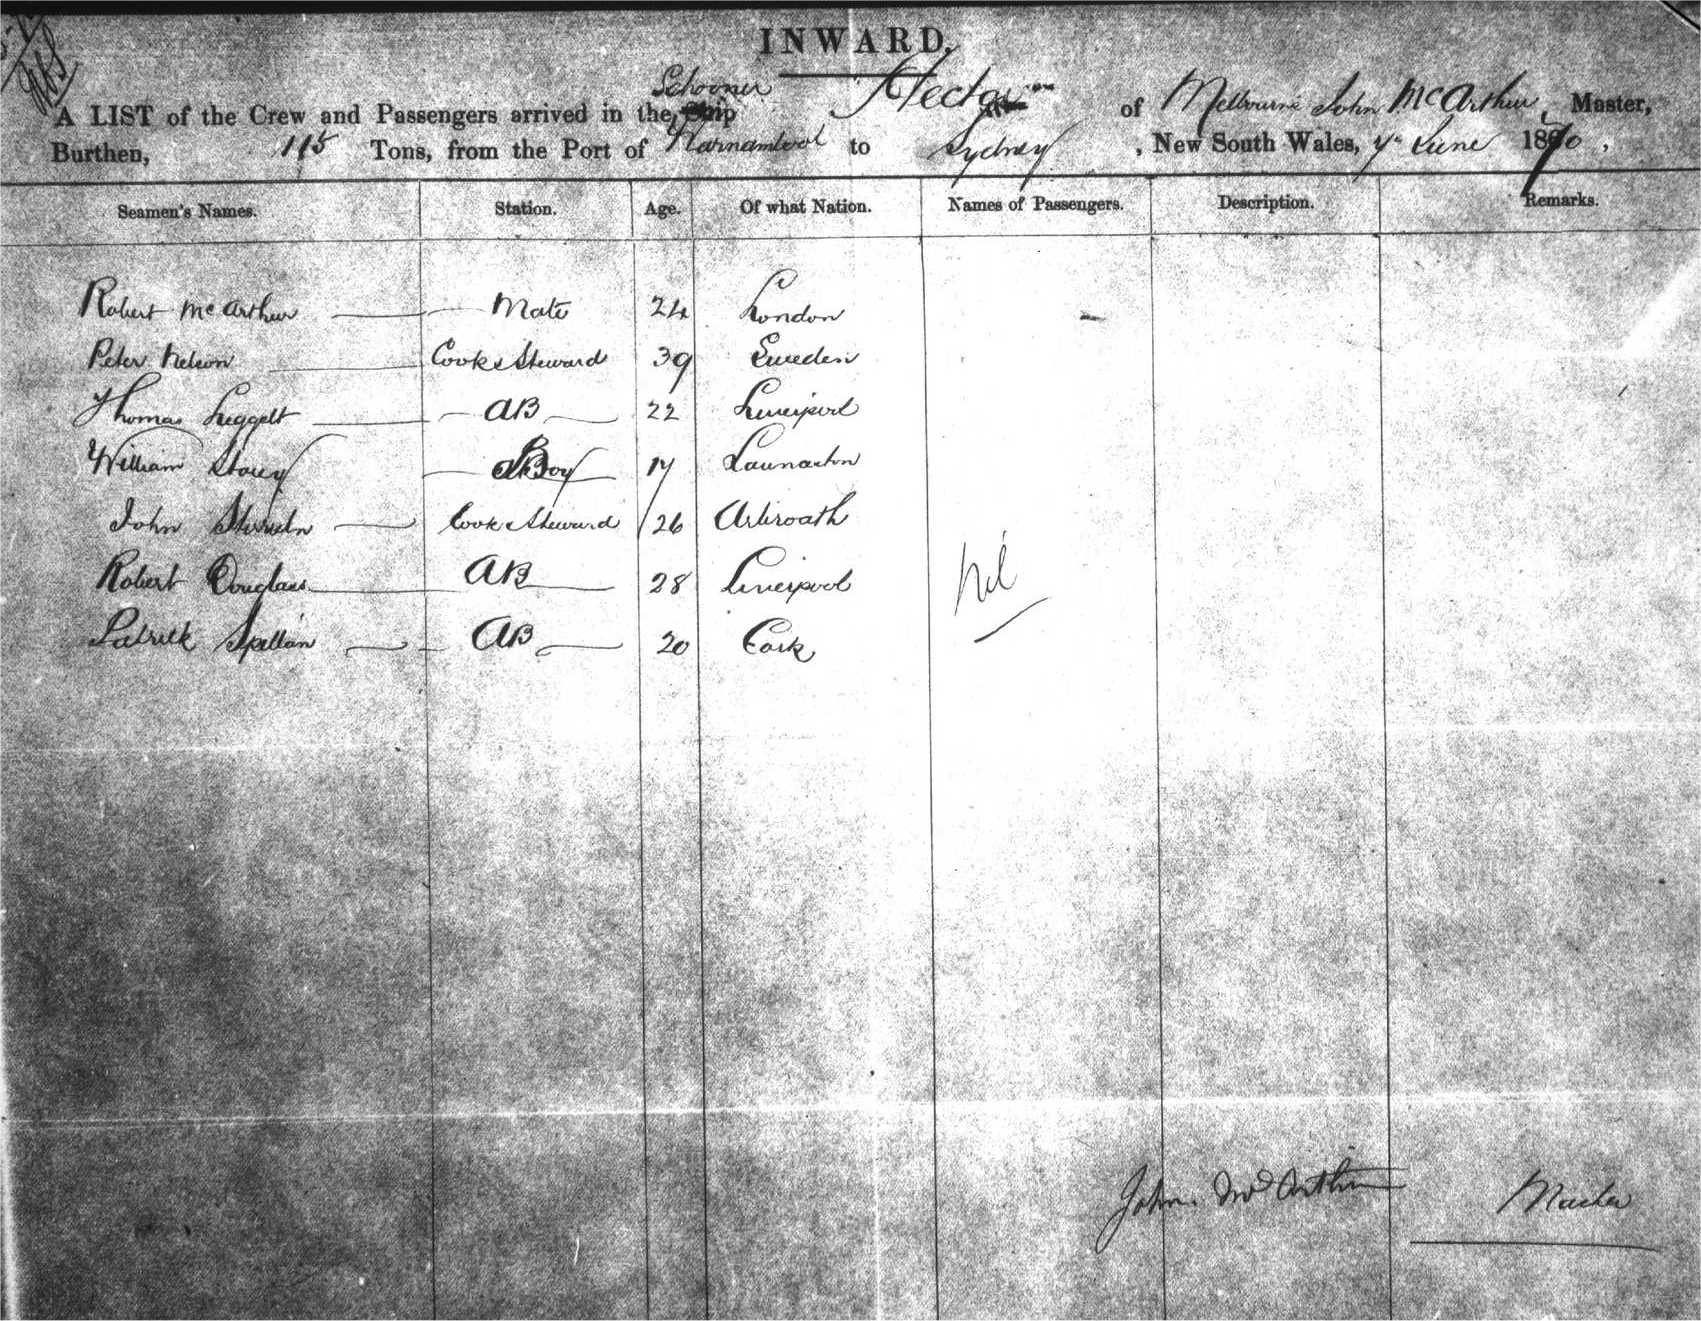 INWARD.
A LIST of the Crew and Passengers arrived in the Schooner Hector of Melbourne John McArthur, Master,
Burthen, 115 Tons, from the Port of Warnambool to Sydney, New South Wales, 7th June 1870,
Seamen's Names. Station. Age. Of what Nation. Names of Passengers. Description. Remarks.
Robert McArthur Mate 24 London
Peter Nelson Cook & Steward 39 Sweden
Thomas Leggett AB 22 Liverpool
William Storey Boy 17 Launceston
John Cook & Steward 26 Arbroath
Robert Douglass AB 28 Liverpool
nil
Patrick Spillan AB 20 Cork
John McArthur Master